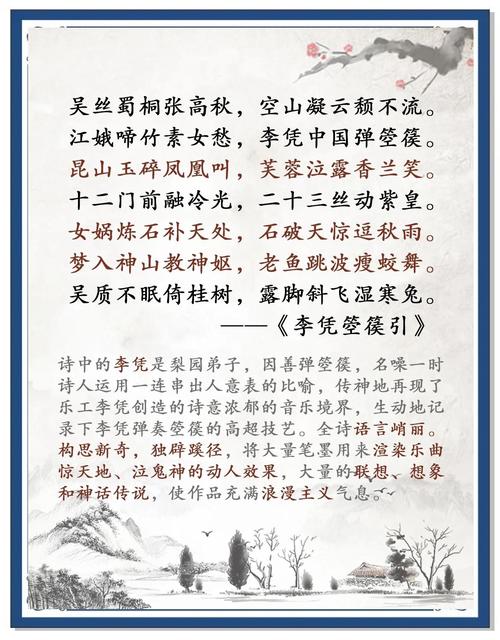 吴丝蜀桐张高秋，空山凝云颓不流。
江娥啼竹素女愁，李凭中国弹箜篌。
昆山玉碎凤凰叫，芙蓉泣露香兰笑。
十二门前融冷光，二十三丝动紫皇。
女娲炼石补天处，石破天惊逗秋雨。
梦入神山教神妪，老鱼跳波瘦蛟舞。
吴质不眠倚桂树，露脚斜飞湿寒兔。
——《李凭箜篌引》
诗中的李凭是梨园弟子，因善弹箜篌，名噪一时
诗人运用一连串出人意表的比喻，传神地再现了
乐工李凭创造的诗意浓郁的音乐境界，生动地记
录下李凭弹奏箜篌的高超技艺。全诗语言峭丽。
构思新奇，独辟蹊径，将大量笔墨用来渲染乐曲
惊天地、泣鬼神的动人效果，大量的联想、想象
和神话传说，使作品充满浪漫主义气息。